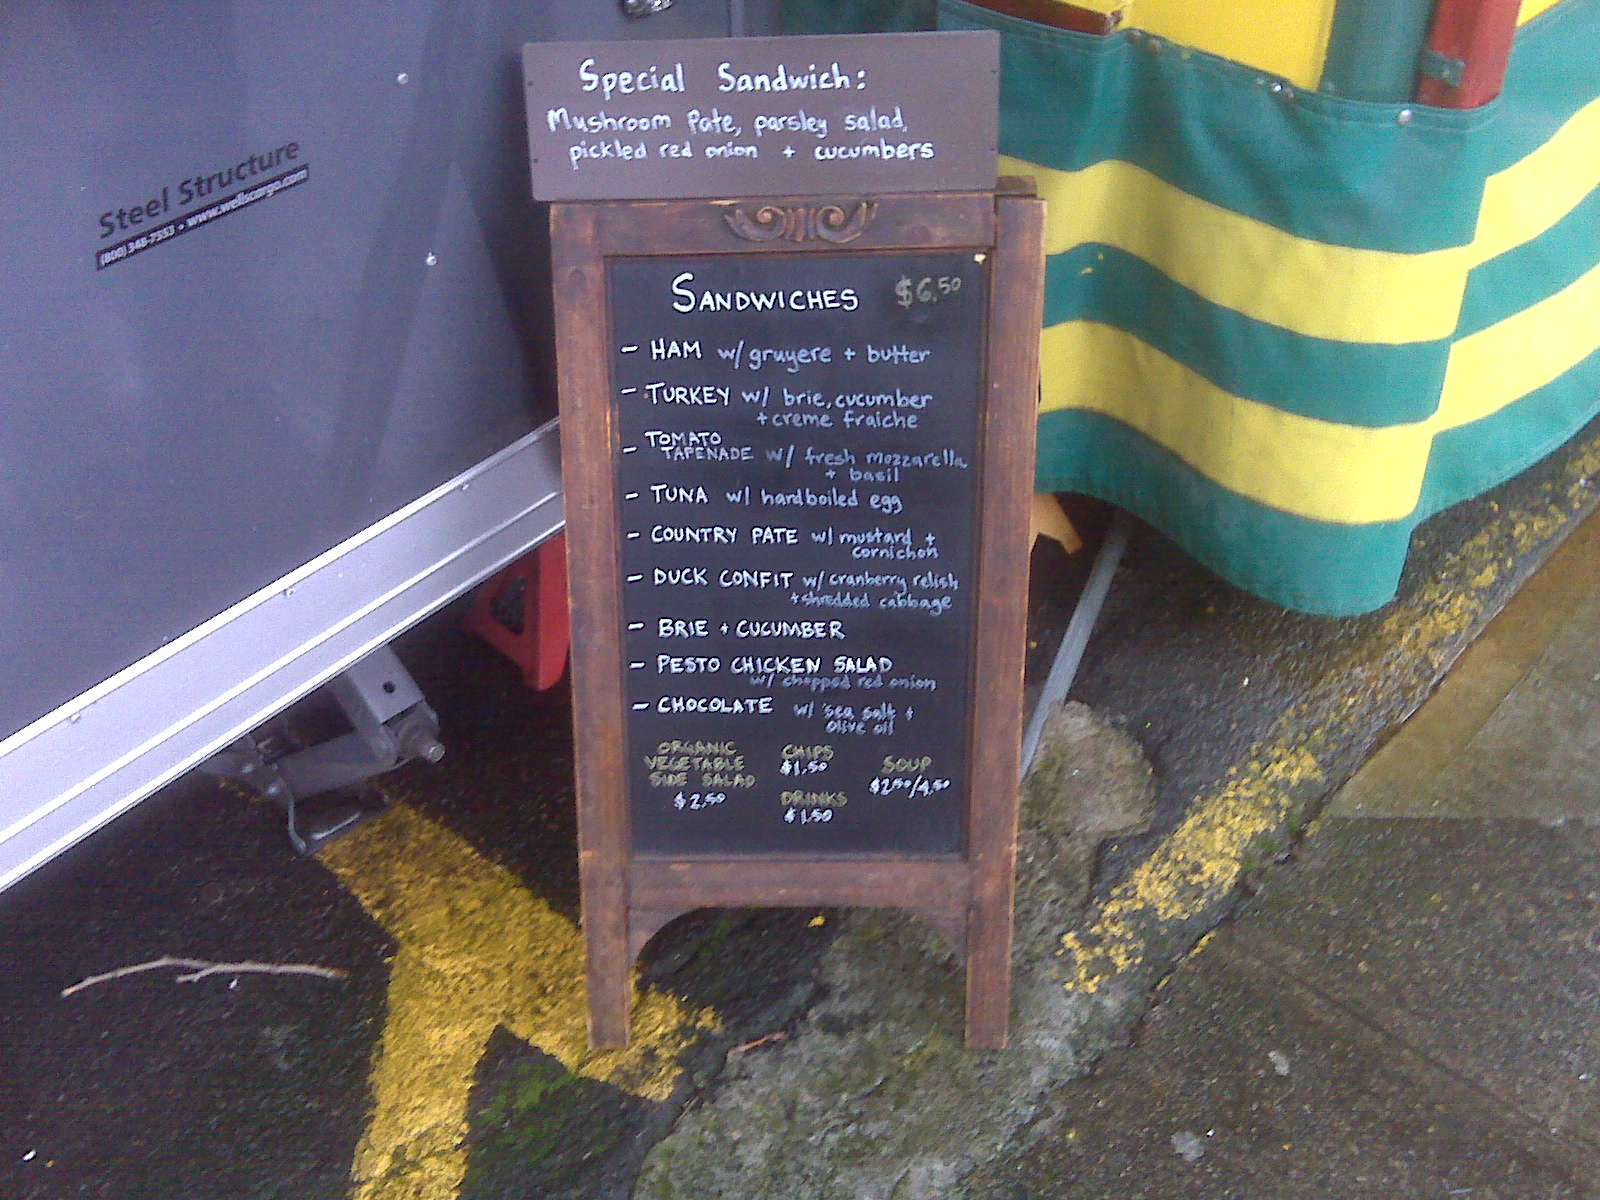 Special Sandwich:
Mushroom Pate, parsley salad,
pickled red onion + cucumbers
Steel Structure
(800) 348-7553 • www.wellscargo.com
SANDWICHES $6.50
- HAM w/ gruyere + butter
- TURKEY w/ brie, cucumber
+ creme fraiche
- TOMATO
TAPENADE w/ fresh mozzarella
+ basil
- TUNA w/ hardboiled egg
- COUNTRY PATE w/ mustard +
cornichon
- DUCK CONFIT w/ cranberry relish
+ shredded cabbage
- BRIE + CUCUMBER
- PESTO CHICKEN SALAD
w/ chopped red onion
- CHOCOLATE w/ sea salt +
olive oil
ORGANIC
VEGETABLE
SIDE SALAD
$2.50
CHIPS
$1.50
DRINKS
$1.50
SOUP
$2.50/4.50